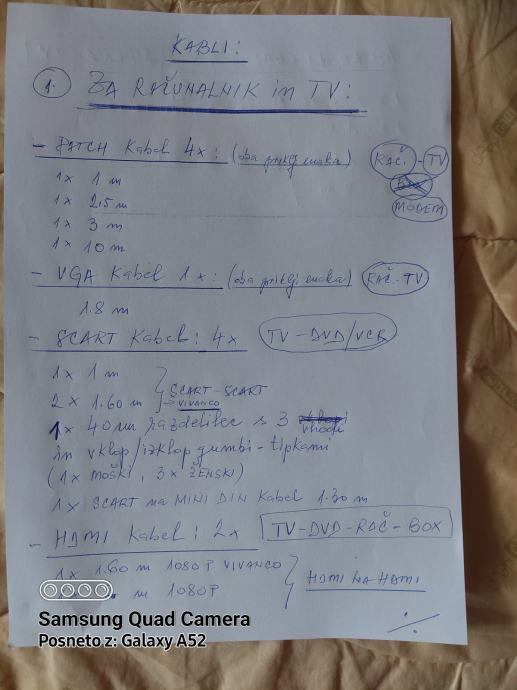 KABLI:
1. ZA RAČUNALNIK in TV:
- PATCH Kabel 4x: (oba priklj. enaka) RAČ. - TV
1x 1 m
1x 2,5 m MODEM
1x 3 m
1x 10 m
- VGA Kabel 1x: (oba priklj. enaka) RAČ. - TV
1.8 m
- SCART Kabel: 4x TV - DVD/VCR
1x 1 m
2x 1.60 m SCART - SCART
→ VIVANCO
1x 40 cm razdelilec s 3 vhodi
in vklop/izklop gumbi - tipkami
(1x MOŠKI, 3x ŽENSKI)
1x SCART na MINI DIN Kabel 1.30 m
- HDMI Kabel: 2x TV-DVD-RAČ-BOX
1x 1.60 m 1080P VIVANCO
m 1080P HDMI NA HDMI
./.
Samsung Quad Camera
Posneto z: Galaxy A52